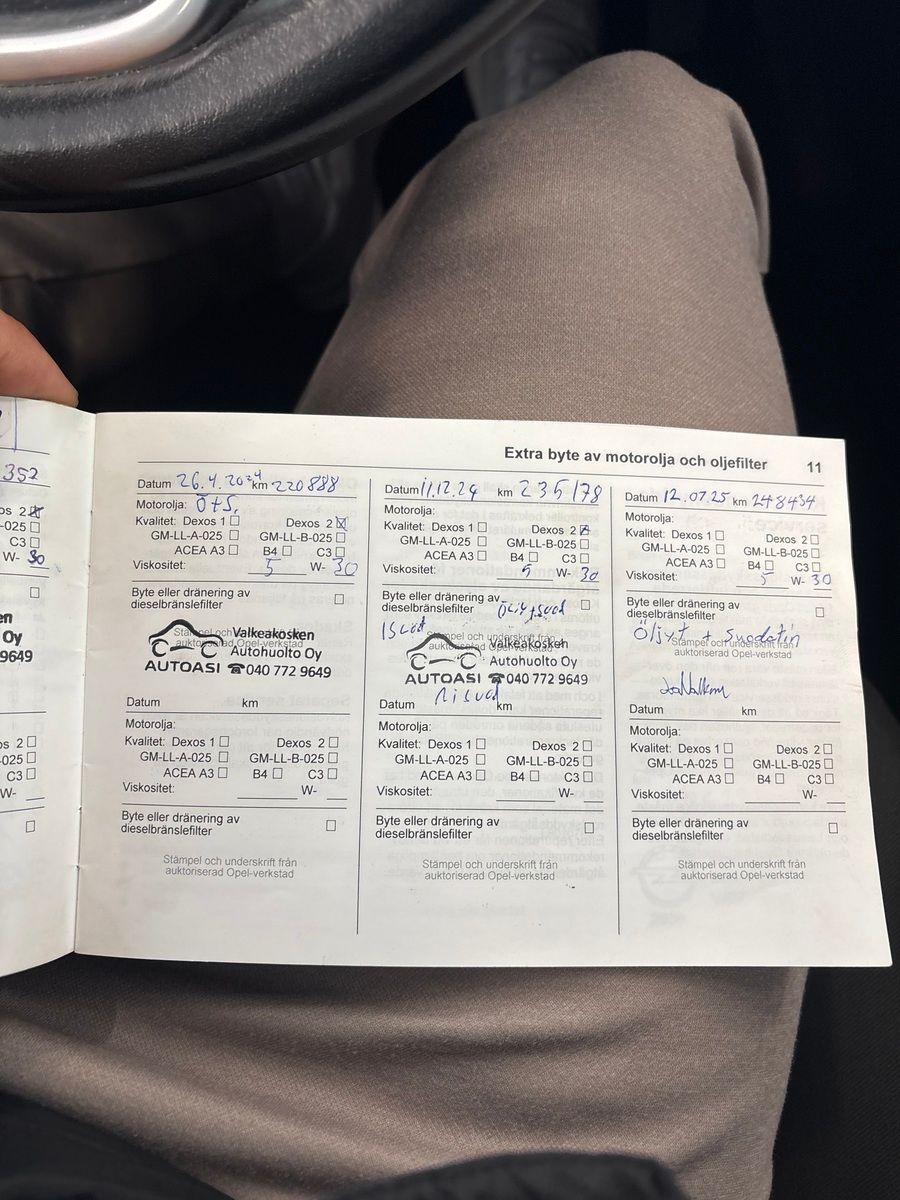 352
s 2
-025
C3
W- 30
en
Oy
9649
s 2
025
C3
W-
Extra byte av motorolja och oljefilter 11
Datum 26.4.2024 km 220888
Motorolja: Ö+S.
Kvalitet: Dexos 1 Dexos 2
GM-LL-A-025 GM-LL-B-025
ACEA A3 B4 C3
Viskositet: 5 W- 30
Byte eller dränering av
dieselbränslefilter
Stämpel och underskrift från
auktoriserad Opel-verkstad
Valkeakosken
Autohuolto Oy
AUTOASI ☎ 040 772 9649
Datum km
Motorolja:
Kvalitet: Dexos 1 Dexos 2
GM-LL-A-025 GM-LL-B-025
ACEA A3 B4 C3
Viskositet: W-
Byte eller dränering av
dieselbränslefilter
Stämpel och underskrift från
auktoriserad Opel-verkstad
Datum 11.12.24 km 235178
Motorolja:
Kvalitet: Dexos 1 Dexos 2
GM-LL-A-025 GM-LL-B-025
ACEA A3 B4 C3
Viskositet: 5 W- 30
Byte eller dränering av
dieselbränslefilter
Stämpel och underskrift från
auktoriserad Opel-verkstad
Valkeakosken
Autohuolto Oy
AUTOASI ☎ 040 772 9649
Datum km
Motorolja:
Kvalitet: Dexos 1 Dexos 2
GM-LL-A-025 GM-LL-B-025
ACEA A3 B4 C3
Viskositet: W-
Byte eller dränering av
dieselbränslefilter
Stämpel och underskrift från
auktoriserad Opel-verkstad
Datum 12.07.25 km 248434
Motorolja:
Kvalitet: Dexos 1 Dexos 2
GM-LL-A-025 GM-LL-B-025
ACEA A3 B4 C3
Viskositet: 5 W- 30
Byte eller dränering av
dieselbränslefilter
Öljyt + suodatin
Stämpel och underskrift från
auktoriserad Opel-verkstad
Datum km
Motorolja:
Kvalitet: Dexos 1 Dexos 2
GM-LL-A-025 GM-LL-B-025
ACEA A3 B4 C3
Viskositet: W-
Byte eller dränering av
dieselbränslefilter
Stämpel och underskrift från
auktoriserad Opel-verkstad